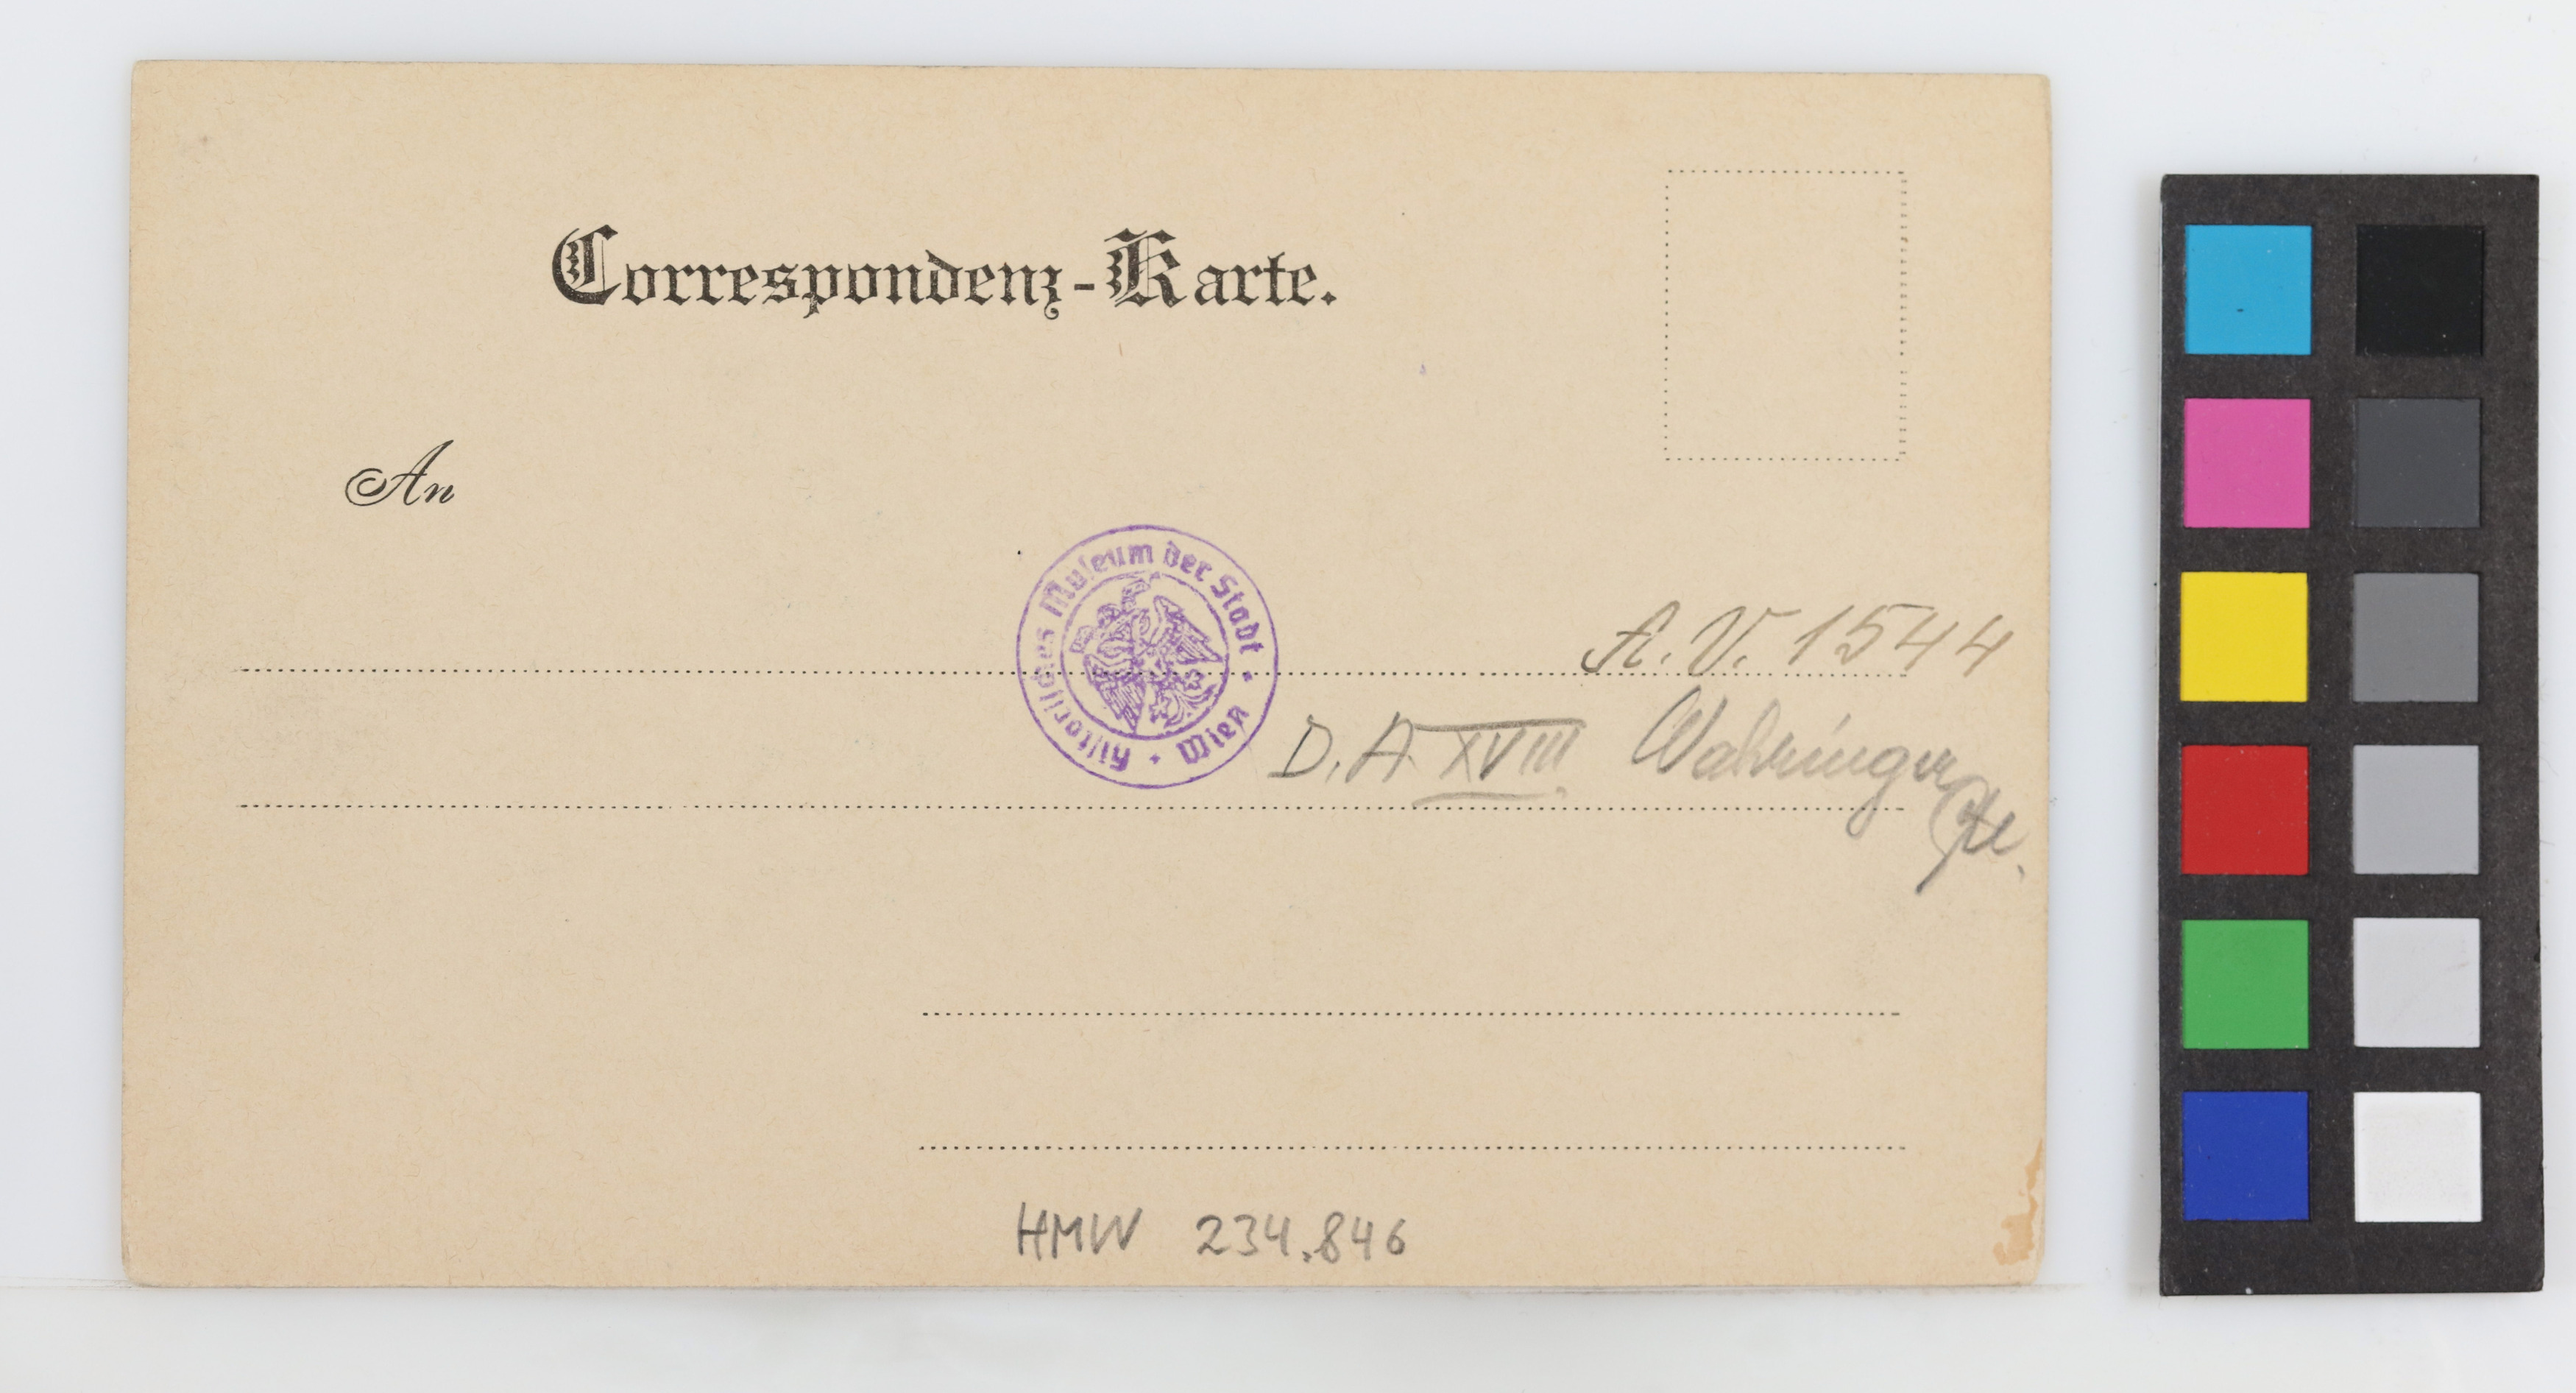 Correspondenz-Karte.
An
Historisches Museum der Stadt Wien
A.V. 1544
D.A. XVIII Währinger
HMW 234.846